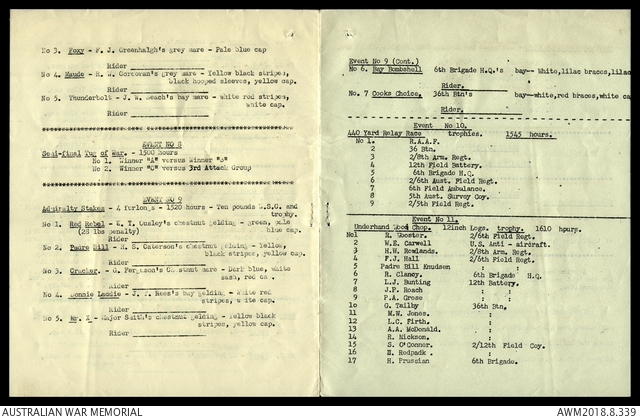 No 3. Foxy - F. J. Greenhalgh's grey mare - Pale blue cap
Rider
No 4. Maude - R. W. Corcoran's grey mare - Yellow black stripes,
black hooped sleeves, yellow cap.
Rider
No 5. Thunderbolt - J. W. Beach's bay mare - white red stripes,
white cap.
Rider
EVENT No 8
Semi-final Tug of War. - 1500 hours
No 1. Winner "A" versus Winner
No 2. Winner "C" versus 3rd Attack Group
EVENT No 9
Admiralty Stakes - 4 furlongs - 1520 hours - Ten pounds and
trophy.
No 1. Red Rebel - E. T. Ousley's chestnut gelding - green, pale
(28 lbs penalty) blue cap.
Rider
No 2. Padre Bill - H. S. Caterson's chestnut gelding - Yellow,
black stripes, black cap.
Rider
No 3. Cracker. - G. Ferguson's Chestnut mare - Dark blue, white
sash, red cap.
Rider
No 4. Bonnie Laddie - J. T. Rees's bay gelding - white red
stripes, white cap.
Rider
No 5. Mr. X - Major Smith's chestnut gelding - Yellow black
stripes, yellow cap.
Rider
Event No 9 (Cont.)
No 6. Bay Bombshell 6th Brigade H.Q.'s bay--White,lilac braces,lilac
Rider.
No. 7 Cooks Choice. 36th Btn's bay--white,red braces,white ca
Rider.
Event No 10.
440 Yard Relay Race trophies. 1545 hours.
No 1. R.A.A.F.
2 36 Btn.
3 2/8th Arm. Regt.
4 12th Field Battery.
5 6th Brigade H.Q.
6 2/6th Aust. Field Regt.
7 6th Field Ambulance.
8 5th Aust. Survey Coy.
9 2/5th Field Regt.
Event No 11.
Underhand Wood Chop. 12inch Logs. trophy. 1610 hours.
No1 R. Wooster. 2/6th Field Regt.
2 W.E. Carwell U.S. Anti - aircraft.
3 H.W. Rowlands. 2/8th Arm. Regt.
4 F.J. Hall 2/6th Field Regt.
5 Padre Bill Knudsen :
6 R. Clancy. 6th Brigade H.Q.
7 L.J. Bunting 12th Battery.
8 J.P. Roach :
9 P.A. Grose :
10 G. Tailby 36th Btn.
11 M.W. Jones. :
12 L.C. Firth. :
13 A.A. McDonald. :
14 R. Nickson. :
15 S. O'Conner. 2/12th Field Coy.
16 E. Redpadk . :
17 H. Prussian 6th Brigade.
AUSTRALIAN WAR MEMORIAL
AWM2018.8.339